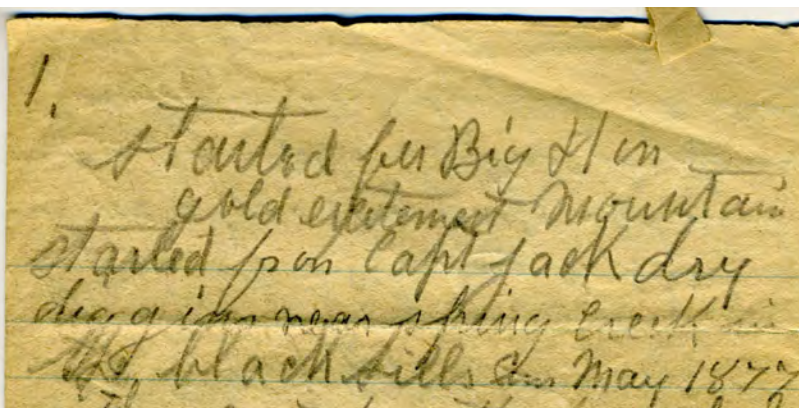 1.
started for Big Horn
gold excitement Mountain
started from Capt Jack dry
diggins near spring creek in
the black hills in May 1877